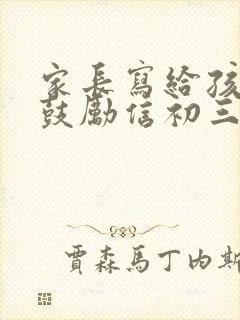 家長寫給孩
鼓勵信初三
賈森馬丁內斯